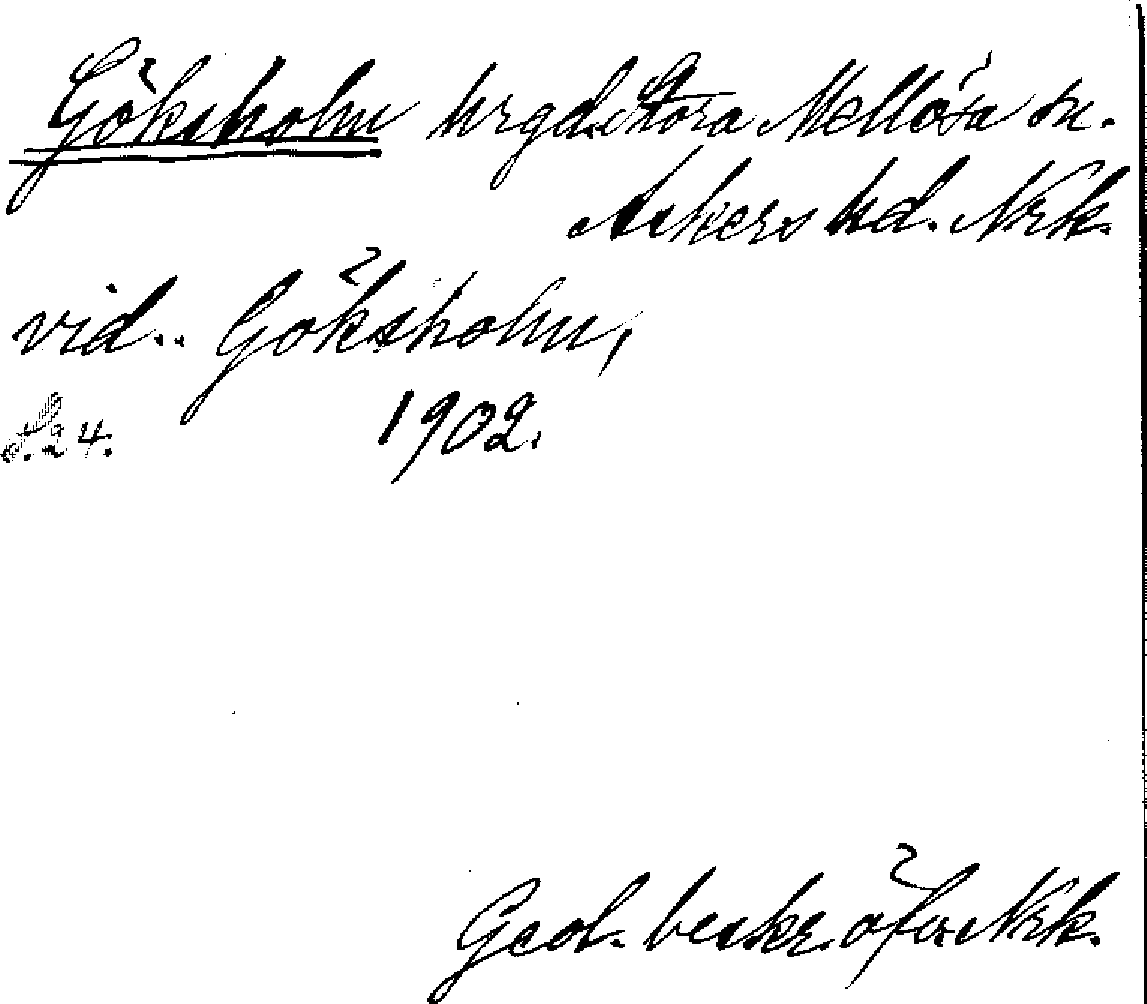 Göksholm hrgd. Stora Mellösa sn.
Askers hd. Nrk.
vid.. Göksholm,
S. 24. 1902.
Geol. beskr. öfver Nrk.